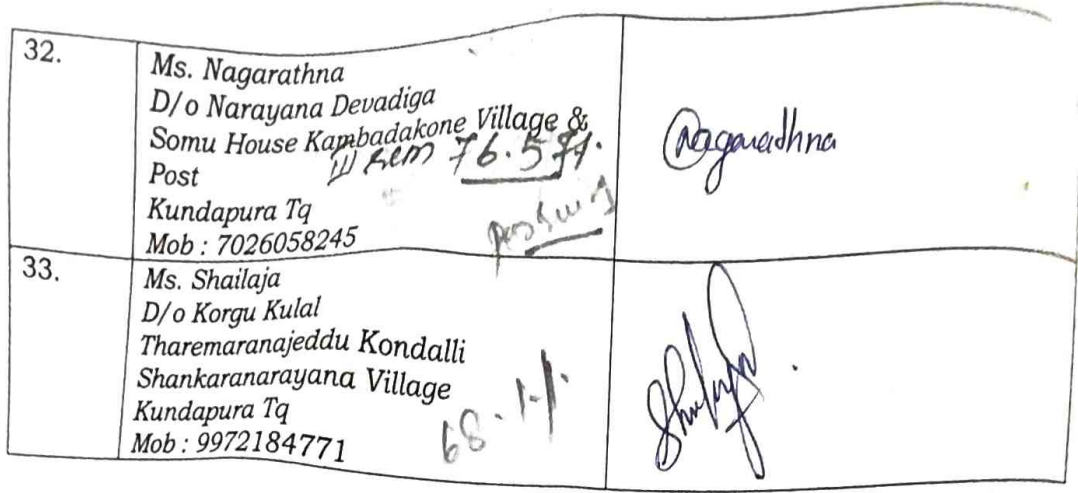 32.
Ms. Nagarathna
D/o Narayana Devadiga
Somu House Kambadakone Village &
III sem 76.57%.
Post
Kundapura Tq
Mob : 7026058245
Nagarathna
33.
Ms. Shailaja
D/o Korgu Kulal
Tharemaranajeddu Kondalli
Shankaranarayana Village
Kundapura Tq
Mob : 9972184771